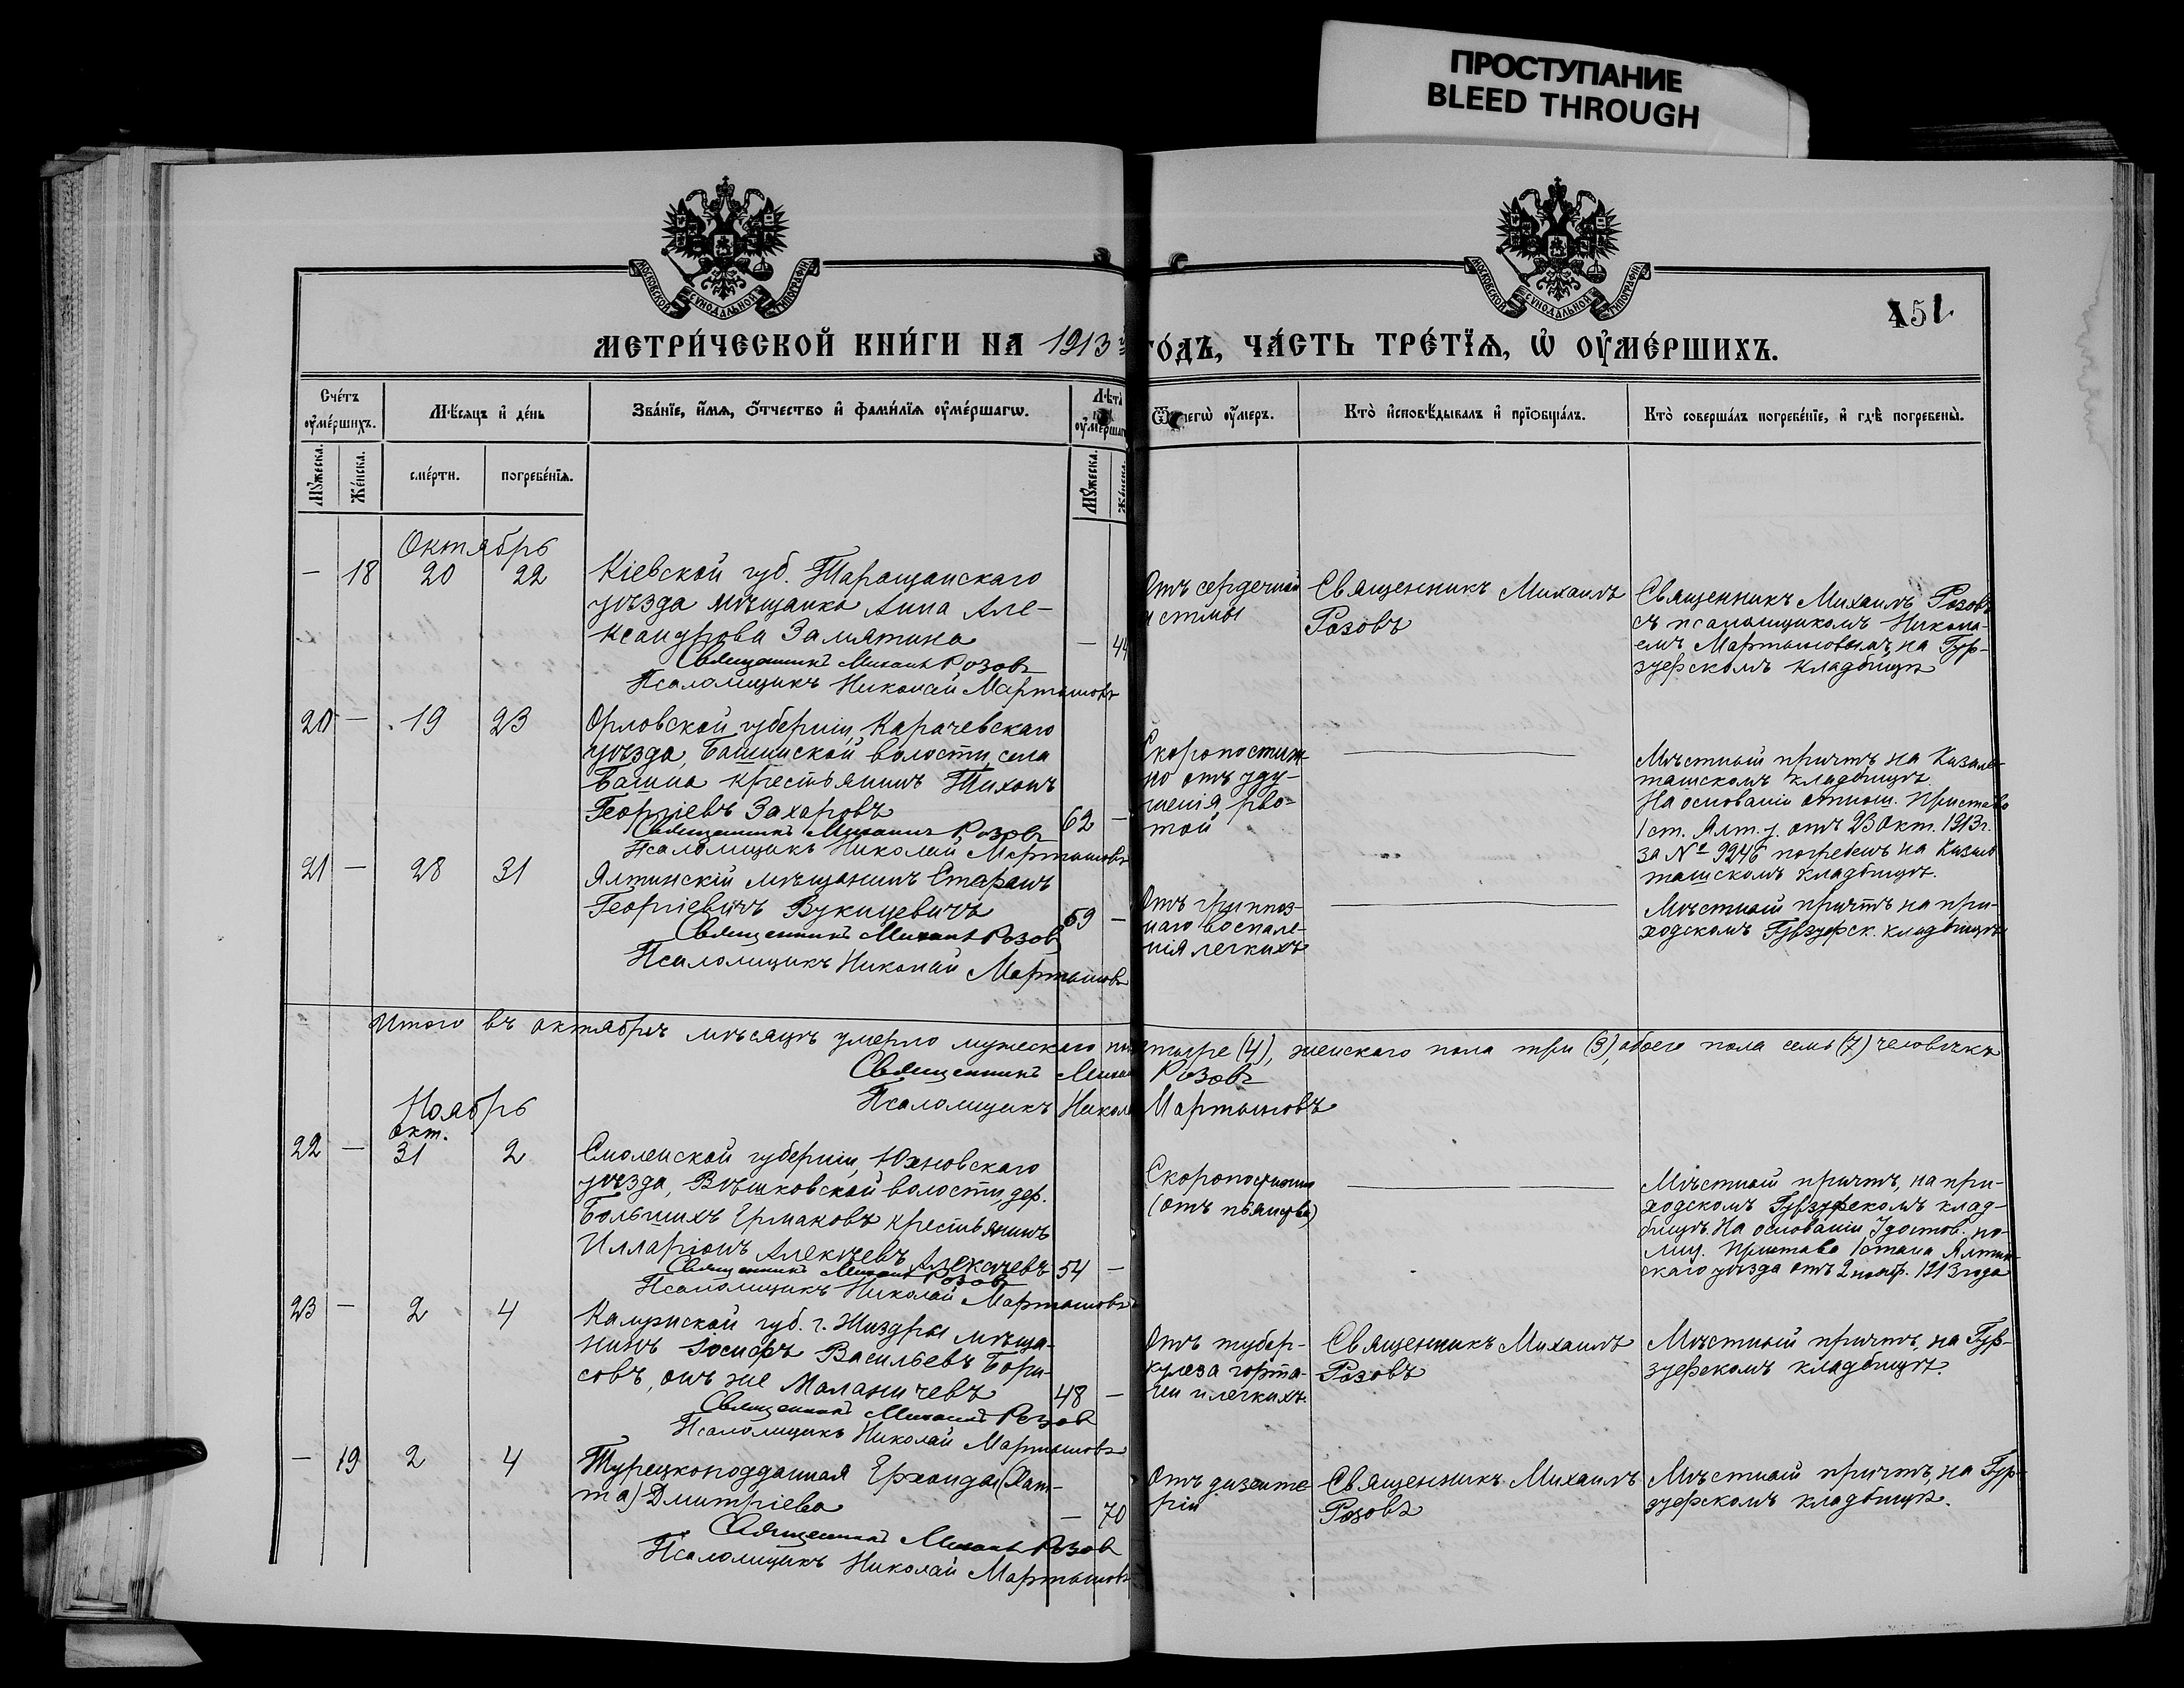 ПРОСТУПАНИЕ
BLEED THROUGH
МОСКОВСКОЙ СѴНОДАЛЬНОЙ ТИПОГРАФІИ
МОСКОВСКОЙ СѴНОДАЛЬНОЙ ТИПОГРАФІИ
451
МЕТРИ́ЧЕСКОЙ КНИ́ГИ НА 1913 го́дъ, ЧА́СТЬ ТРЕ́ТЇѦ, Ѡ҆ ОУ҆МЕ́РШИХЪ.
Сче́тъ оу҆ме́ршихъ.
Мѣ́сяцъ и҆ де́нь
Зва́нїе, и҆́мя, ѻ҆́тчество и҆ фами́лїя оу҆ме́ршагѡ.
Лѣта оу҆ме́ршаг
Ѿ чегѡ̀ оу҆́меръ.
Кто̀ и҆сповѣ́дывалъ и҆ прїѻбща́лъ.
Кто̀ соверша́лъ погребе́нїе, и҆ гдѣ̀ погребены̀.
Мꙋ́жеска.
Же́нска.
сме́рти.
погребе́нїя.
Мꙋ́жеска.
Же́нска.
Октябрь
— 18 20 22
Кіевской губ. Таращанскаго
уѣзда мѣщанка Анна Але-
ксандрова Замятина — 44
Священникъ Михаилъ Розовъ
Псаломщикъ Николай Мартышовъ
Отъ сердечной
астмы
Священникъ Михаилъ
Розовъ
Священникъ Михаилъ Розовъ
съ псаломщикомъ Никола-
емъ Мартышовымъ, на Гур-
зуфскомъ кладбищѣ
20 — 19 23
Орловской губерніи, Карачевскаго
уѣзда, Бошинской волости, села
Бошина крестьянинъ Тихонъ
Георгіевъ Захаровъ 62 —
Священникъ Михаилъ Розовъ
Псаломщикъ Николай Мартышовъ
Скоропостиж-
но отъ уду-
шенія рво-
той
—
Мѣстный причтъ на Кизил-
ташскомъ кладбищѣ
На основаніи отнош. Пристава
1 ст. Ялт. у. отъ 23 Окт. 1913 г.
за № 9246 погребенъ на Кизил
ташскомъ кладбищѣ.
21 — 28 31
Ялтинскій мѣщанинъ Стефанъ
Георгіевичъ Вукицевичъ 69 —
Священникъ Михаилъ Розов
Псаломщикъ Николай Мартышовъ
Отъ гриппоз-
наго воспале-
нія легкихъ
—
Мѣстный причтъ на при-
ходскомъ Гурзуфск. кладбищѣ
Итого въ октябрѣ мѣсяцѣ умерло мужескаго по четыре (4), женскаго пола три (3), обоего пола семь (7) человѣкъ
Священникъ Михаи Розовъ
Псаломщикъ Никол Мартышовъ
Ноябрь
окт.
22 — 31 2
Смоленской губерніи, Юхновскаго
уѣзда, Вѣшковской волости, дер.
Большихъ Ермаковъ крестьянинъ
Илларіонъ Алексѣевъ Алексѣевъ 54 —
Священникъ Михаилъ Розов
Псаломщикъ Николай Мартышовъ
Скоропостижно
(отъ пьянства)
—
Мѣстный причтъ, на при-
ходскомъ Гурзуфскомъ клад-
бищѣ. На основаніи Удостов. по-
лиц. Пристава 1 стана Ялтин
скаго уѣзда отъ 2 нояб. 1913 года
23 — 2 4
Калужской губ. г. Жиздры мѣща-
нинъ Іосифъ Васильевъ Бори-
совъ, онъ же Маланичевъ 48 —
Священникъ Михаилъ Розов
Псаломщикъ Николай Мартышовъ
Отъ тубер-
кулеза горта-
ни и легкихъ.
Священникъ Михаилъ
Розовъ
Мѣстный причтъ, на Гур-
зуфскомъ кладбищѣ.
— 19 2 4
Турецкоподданная
Дмитріева — 70
Священникъ Михаилъ Розов
Псаломщикъ Николай Мартышовъ
Отъ дизенте
ріи
Священникъ Михаилъ
Розовъ
Мѣстный причтъ, на Гур-
зуфскомъ кладбищѣ.